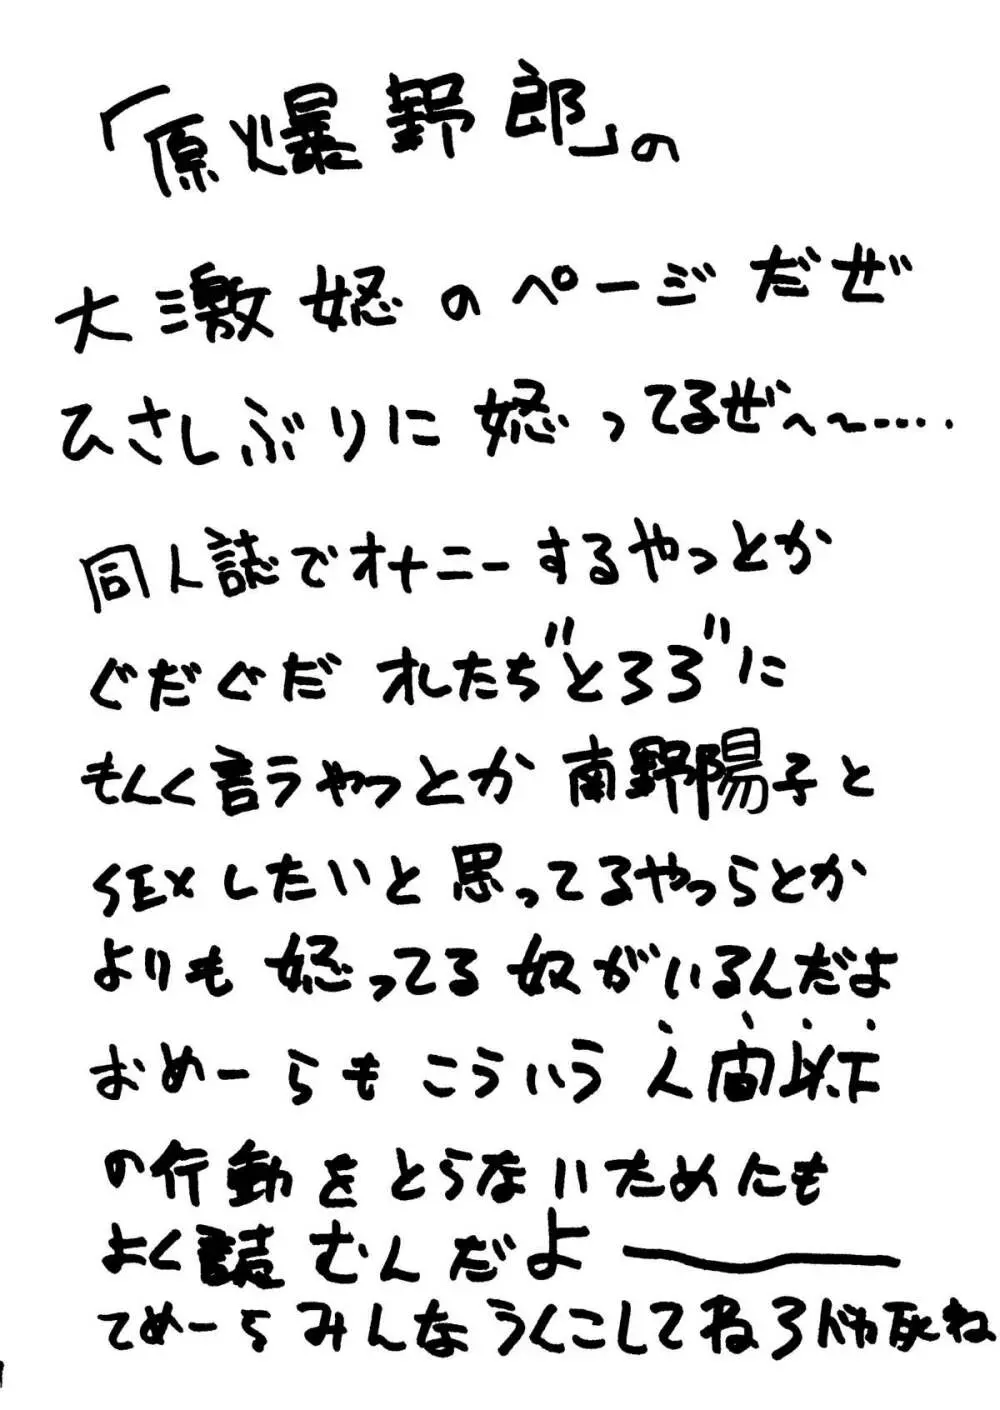 「原爆野郎」の
大激怒のページだぜ
ひさしぶりに怒ってるぜ〜〜……
同人誌でオナニーするやつとか
ぐだぐだオレたち"とろろ"に
もんく言うやつとか南野陽子と
SEXしたいと思ってるやつらとか
よりも怒ってる奴がいるんだよ
おめーらもこういう人間以下
の行動をとらないためにも
よく読むんだよ――
てめーらみんなうんこしてねろバカ死ね